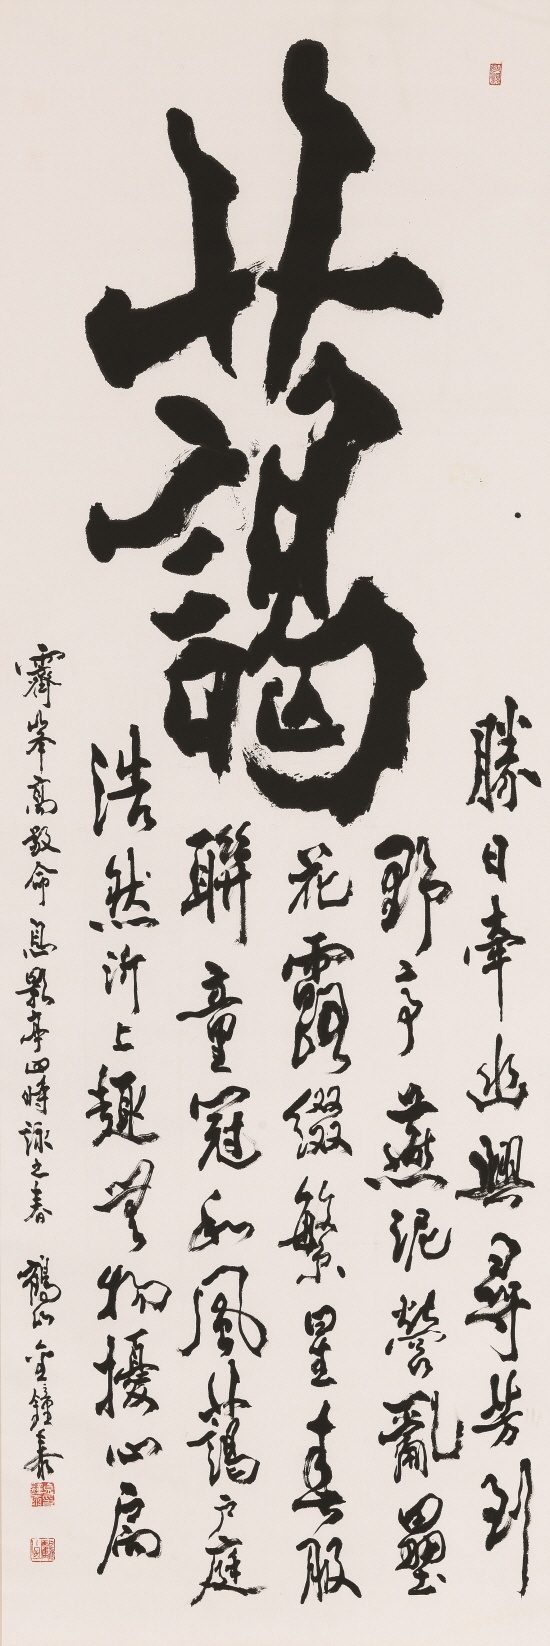 藹
勝日牽幽興尋芳到
野亭燕泥營亂壘
花露綴繁星春服
聯童冠和風藹戶庭
浩然沂上趣無物擾心扃
霽峯高敬命息影亭四時詠之春 鶴山金鐘泰